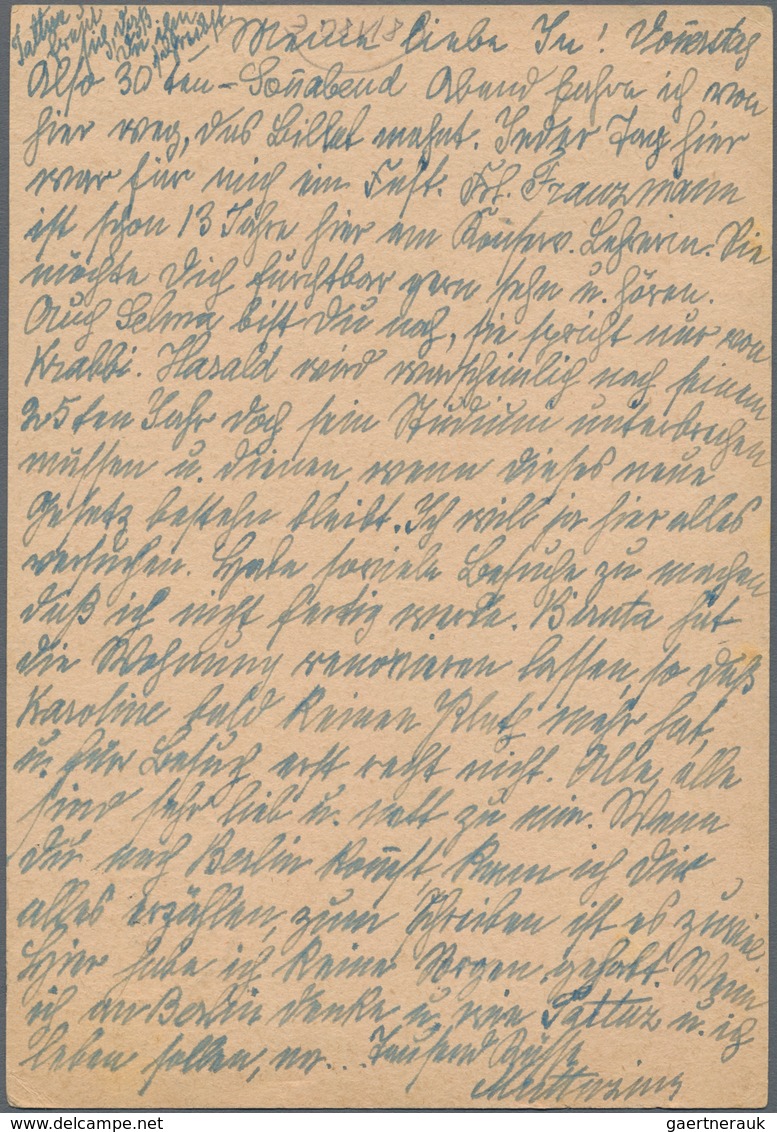 Tattuz
freut
sich, daß
Du ihm
schreibst
Meine liebe In! Don̄erstag
Also 30ten – Son̄abend Abend fahre ich von
hier weg, das Billet mahnt. Jeder Tag hier
war für mich ein Fest. Frl. Franzmann
ist schon 13 Jahre hier am Konserv. Lehrerin. Sie
möchte Dich furchtbar gern sehn u. hören.
Auch Selma bist Du noch, sie spricht nur von
Krabbi. Harald wird warscheinlich nach seinem
25ten Jahr doch sein Studium unterbrechen
müssen u. dienen, wenn dieses neue
Gesetz bestehn bleibt. Ich will ja hier alles
versuchen. Habe soviele Besuche zu machen
daß ich nicht fertig werde. hat
die Wohnung renovieren lassen, so daß
Karoline bald keinen Platz mehr hat,
u. für Besuch erst recht nicht. Alle, alle
sind sehr lieb u. nett zu mir. Wenn
du nach Berlin kom̄st, kann ich Dir
alles erzählen, zum Schreiben ist es zuviel
Hier habe ich keine Sorgen gehabt. Wenn
ich an Berlin denke u. wie Tattuz u. ich
leben sollen, na... Tausend Küsse
gaertnerauk